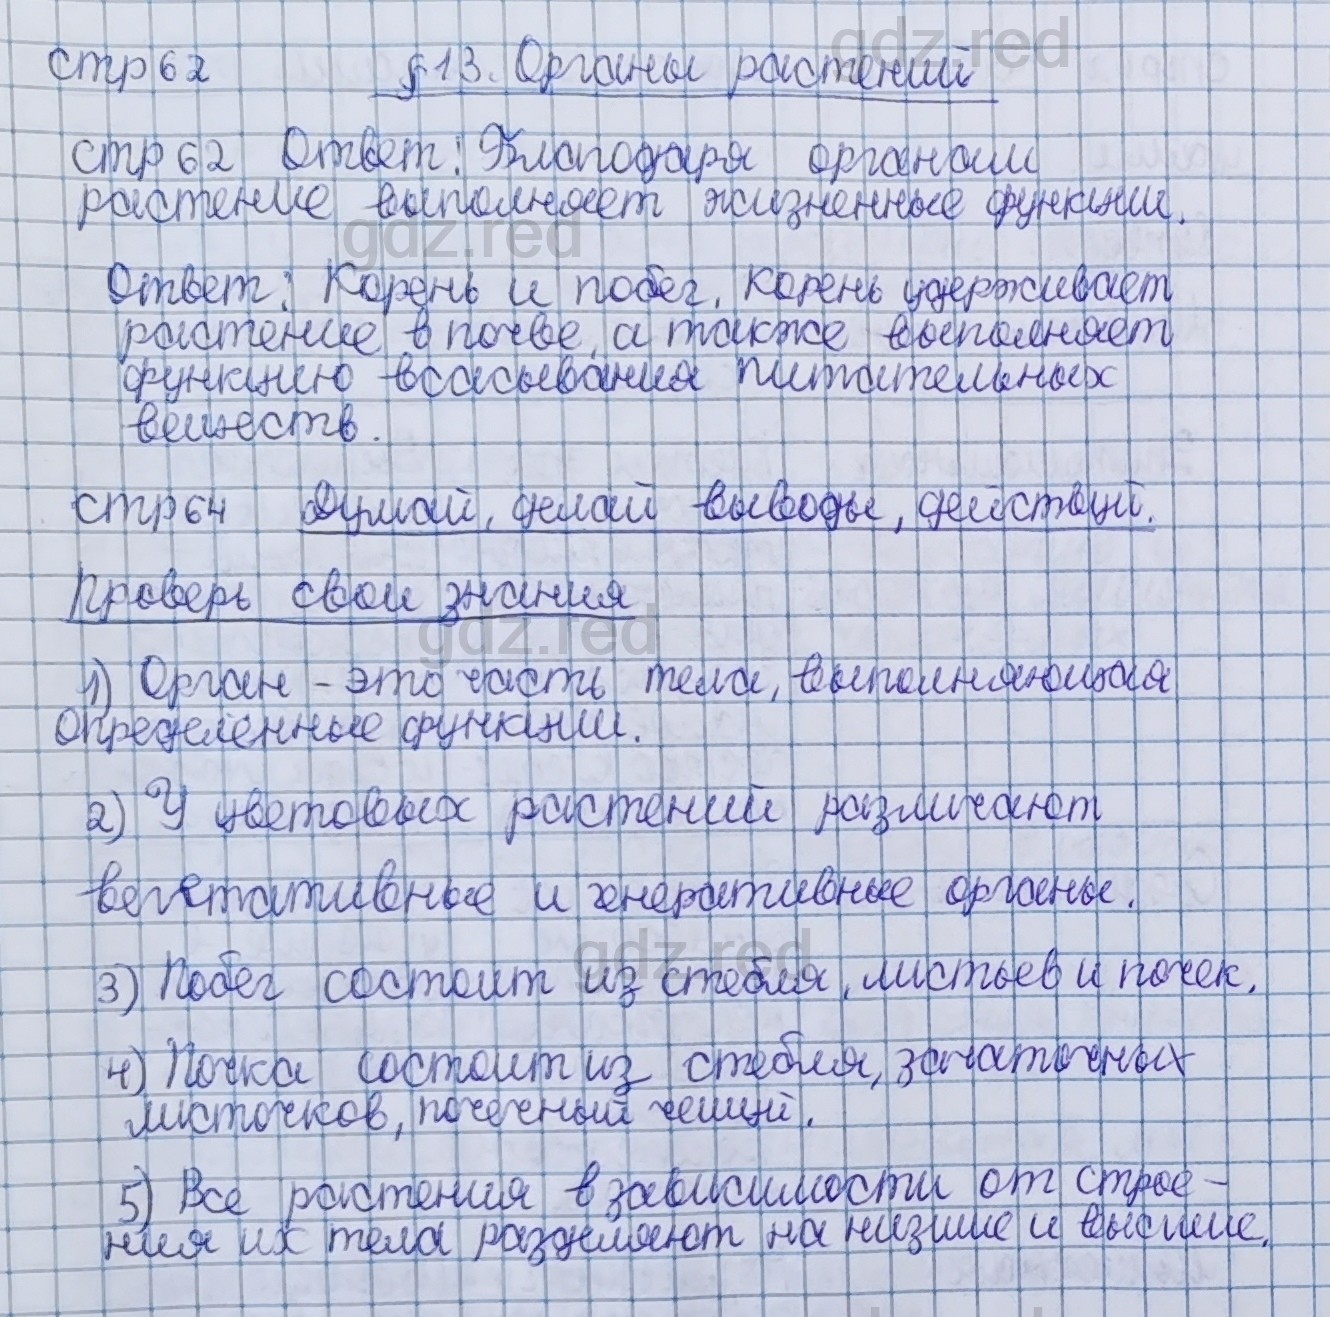 стр 62 § 13. Органы растений
стр 62 Ответ: Благодаря органам
растение выполняет жизненные функции.
Ответ: Корень и побег. Корень удерживает
растение в почве, а также выполняет
функцию всасывания питательных
веществ.
стр 64 Думай, делай выводы, действуй.
Проверь свои знания
1) Орган - это часть тела, выполняющая
определенные функции.
2) У цветовых растений различают
вегетативные и генеративные органы.
3) Побег состоит из стебля, листьев и почек.
4) Почка состоит из стебля, зачаточных
листочков, почечный чешуй.
5) Все растения в зависимости от строе-
ния их тела разделяют на низшие и высшие.
gdz.red
gdz.red
gdz.red
gdz.red